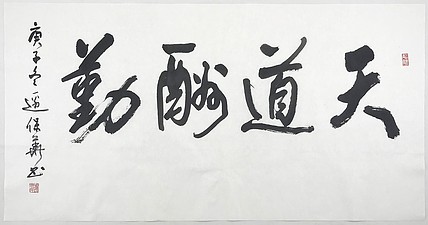 天道酬勤
庚子冬 保華书